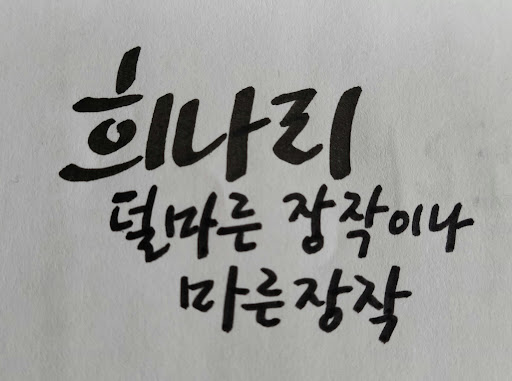 희나리
덜마른 장작이나
마른장작